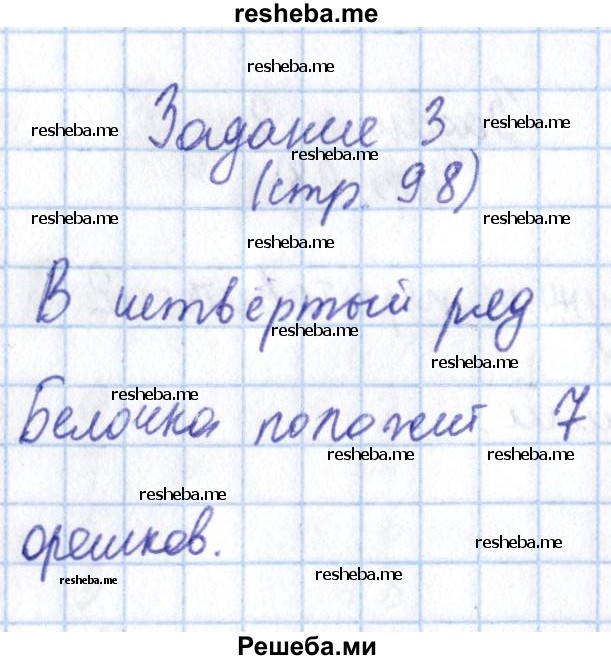 resheba.me
resheba.me
Задание 3
resheba.me
resheba.me
resheba.me
(стр. 98)
resheba.me
resheba.me
resheba.me
В четвёртый ряд
resheba.me
resheba.me
resheba.me
Белочка положит 7
resheba.me
resheba.me
resheba.me
орешков.
resheba.me
resheba.me
resheba.me
Решеба.ми